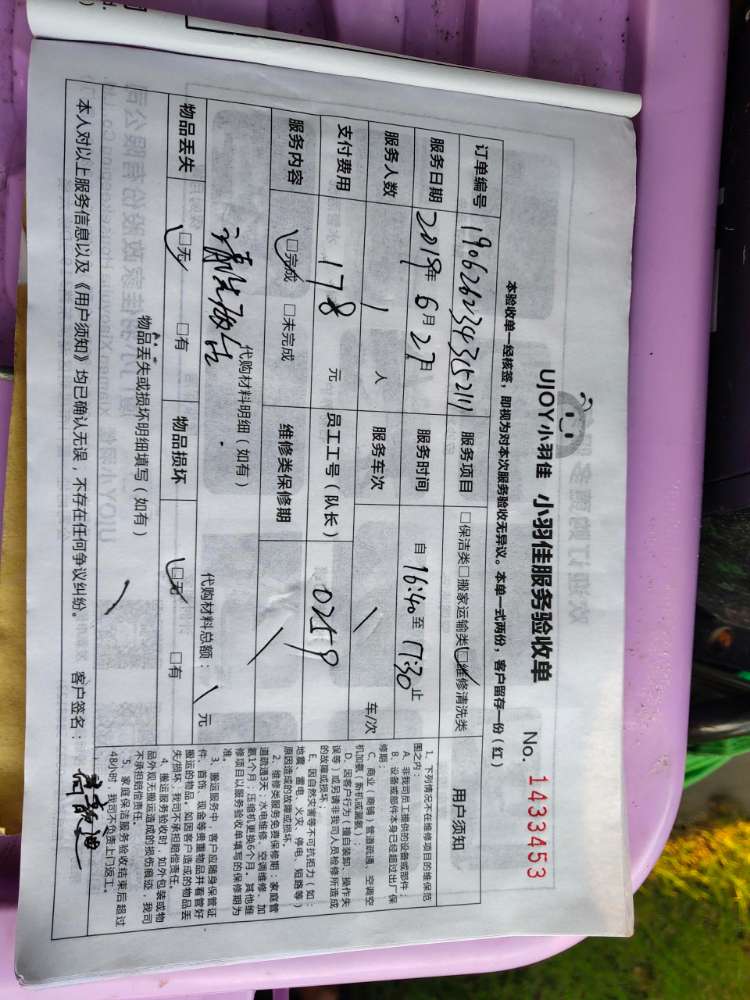 UJOY小羽佳 小羽佳服务验收单
No. 1433453
本验收单一经核签，即视为对本次服务验收无异议。本单一式两份，客户留存一份（红）
订单编号 190626234315211 服务项目 □保洁类□搬家运输类☑维修清洗类
服务日期 2019年6月27日 服务时间 自16:40至17:30止
服务人数 1 人 服务车次 \ 车/次
支付费用 178 元 员工工号（队长） 0259
服务内容 ☑完成 □未完成 维修类保修期 \
代购材料明细（如有）
代购材料总额：\ 元
物品丢失 ☑无 □有 物品损坏 ☑无 □有
物品丢失或损坏明细填写（如有）
\
本人对以上服务信息以及《用户须知》均已确认无误，不存在任何争议纠纷。 客户签名：
用户须知
1、下列情况不在维修项目的维保范
围之内：
A、非我司员工提供的设备或部件；
B、设备或部件本身已经超过出厂保
修期；
C、商业（商铺）管道疏通、空调空
机加氨（新机或漏氨）；
D、因客户行为（擅自装卸、操作失
误等）或另请非我司人员检修所造成
的故障或损坏。
E、因自然灾害等不可抗拒力（如：
地震、雷电、火灾、停电、短路等）
原因造成的故障或损坏。
2、维修类服务免费保修期：家庭管
道疏通3天；水电维修、空调维修、加
氨1个月；压缩机更换6个月，其他维
修项目以服务验收单填写的保修期为
准。
3、搬运服务中，客户应随身保管证
件、首饰、现金等贵重物品并看管好
搬运的物品，如因客户造成的物品丢
失/损坏，我司不承担赔偿责任。
4、搬运服务验收时，如外包装或物
品外观无搬运造成的损伤痕迹，我司
不承担赔偿责任。
5、家庭保洁服务验收结束后超过
48小时，我司不负责上门返工。